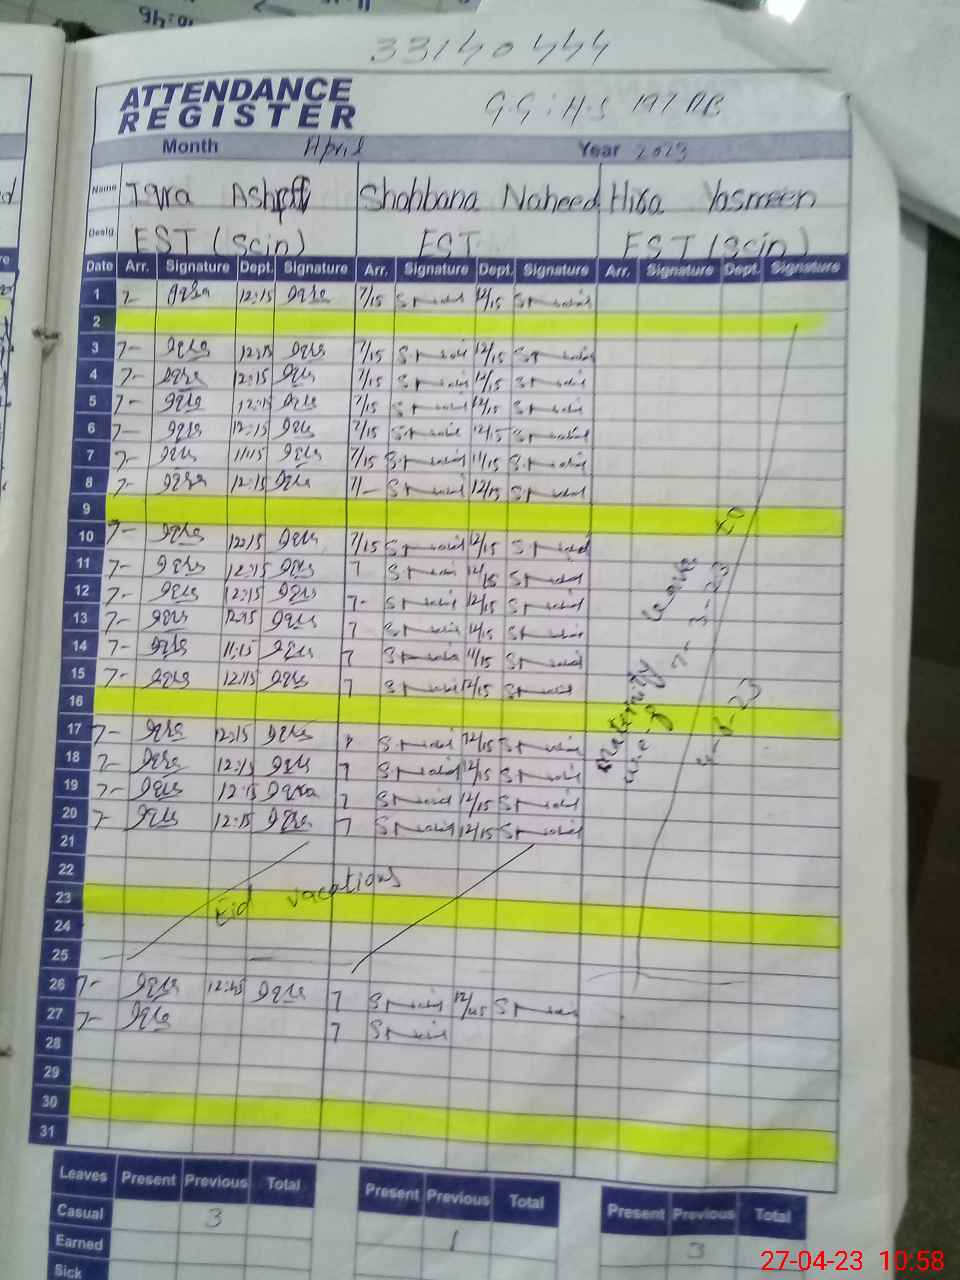 33140444
ATTENDANCE
REGISTER
G.G.H.S 197 RB
Month April Year 2023
Name Iqra Ashraf Shahbana Naheed Hira Yasmeen
Desig. EST (Scin) EST EST (Scin)
Date Arr. Signature Dept. Signature Arr. Signature Dept. Signature Arr. Signature Dept. Signature
1 7- Iqra 12:15 Iqra 7/15 12/15
2
3 7- Iqra 12:15 Iqra 7/15 12/15
4 7- Iqra 12:15 Iqra 7/15 12/15
5 7- Iqra 12:15 Iqra 7/15 12/15
6 7- Iqra 12:15 Iqra 7/15 12/15
7 7- Iqra 11:15 Iqra 7/15 11/15
8 7- Iqra 12:15 Iqra 7/- 12/15
9
10 7- Iqra 12:15 Iqra 7/15 12/15
11 7- Iqra 12:15 Iqra 7 12/15
12 7- Iqra 12:15 Iqra 7- 12/15
13 7- Iqra 12:15 Iqra 7 12/15
14 7- Iqra 11:15 Iqra 7 11/15
15 7- Iqra 12:15 Iqra 7 12/15
16
17 7- Iqra 12:15 Iqra 12/15
18 7- Iqra 12:15 Iqra 7 12/15
19 7- Iqra 12:15 Iqra 7 12/15
20 7- Iqra 12:15 Iqra 7 12/15
21
22
23 Eid vacations
24
25
26 7- Iqra 12:45 Iqra 7 12/45
27 7- Iqra 7
28
29
30
31
Maternity Leave
w.e.f 7-3-23 to
Leaves Present Previous Total Present Previous Total Present Previous Total
Casual 3 1 3
Earned
Sick
27-04-23 10:58